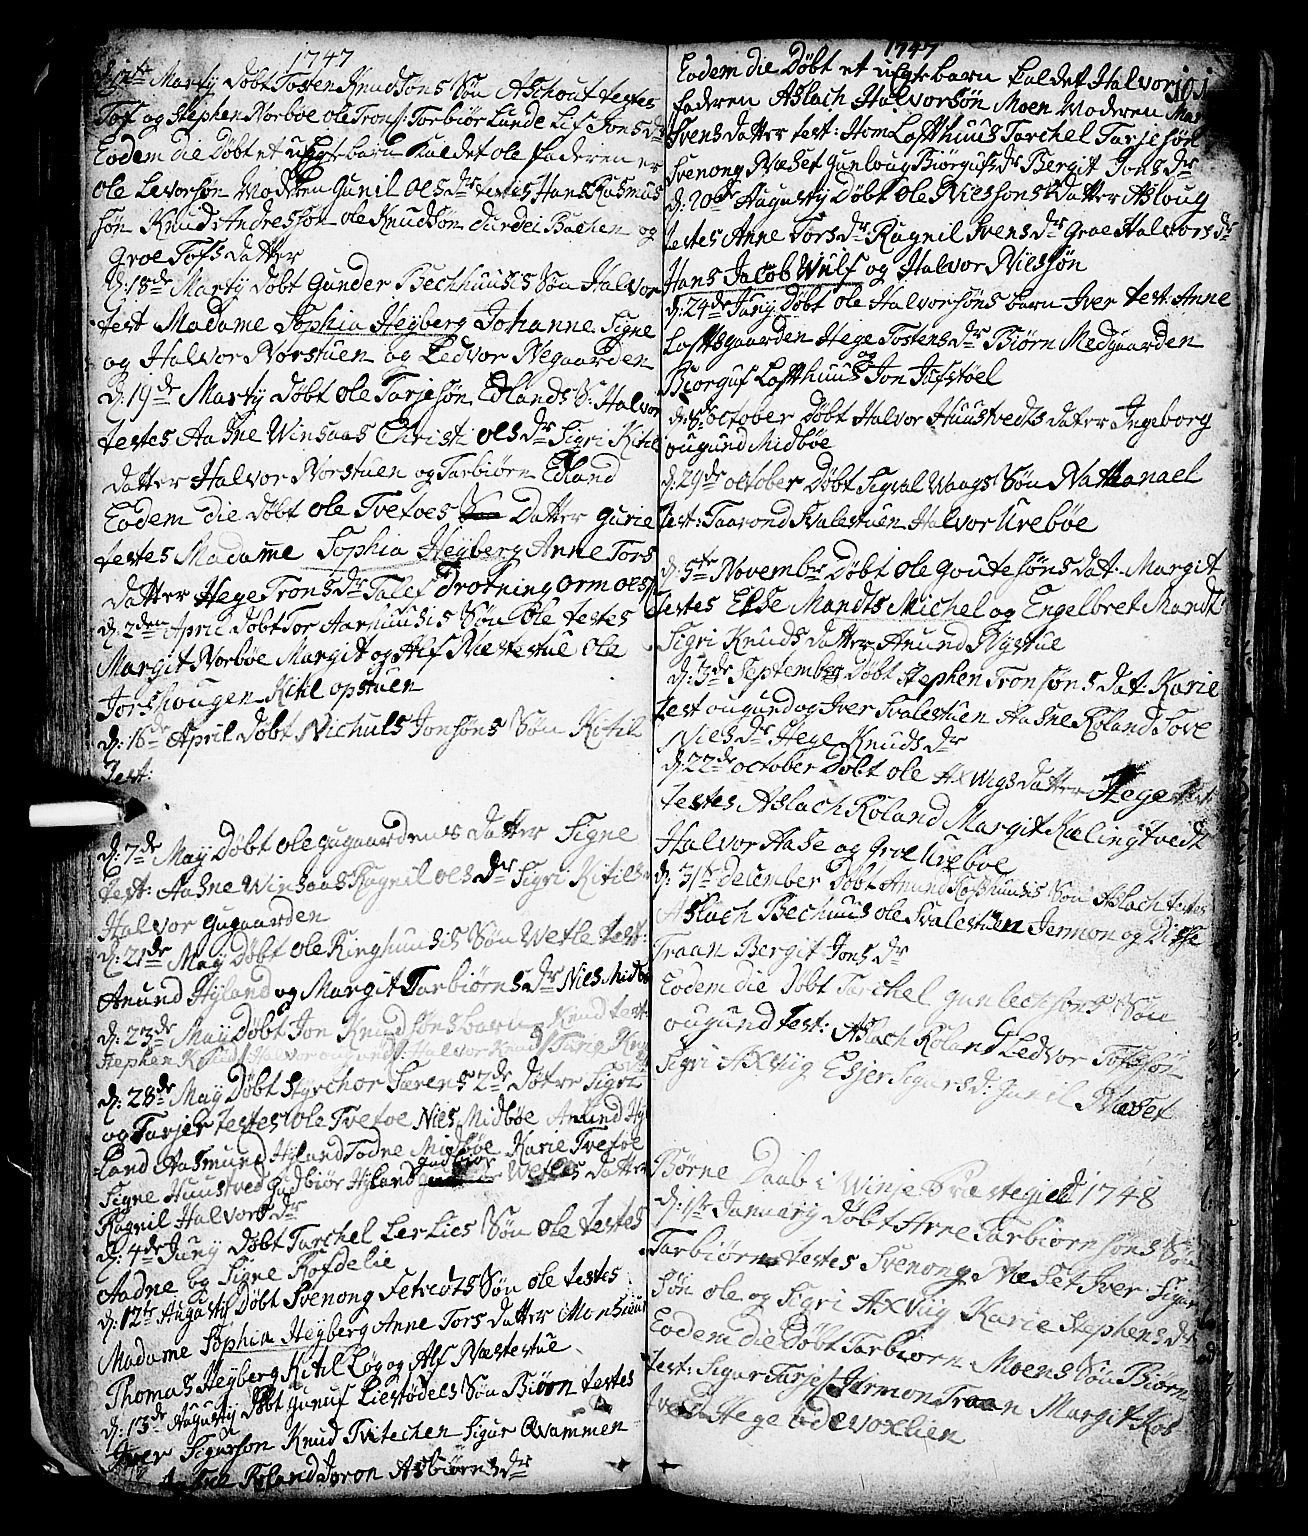 1747
d: 12te Marty Døbt Tosten Knudsøns Søn Aschout testes
Tof og Stephen Norboe ole Trons: Torbiør Lunde Lif Jons dr
Eodem die Døbt et uEgte barn kaldet ole faderen er
ole Levorsøn Moderen Gunil oles dr testes Hans Rasmus
søn Knud Andressøn ole Knudsøn Durdei Bachen og
Groe Tofs datter
d: 18de Marty Døbt Gunder Bechhuusis Søn Halvor
test Madame Sophia Heyberg Johanne Signe
og Halvor Norstuen og Ledvor Negaarden
D: 19de Marty Døbt ole Tarjesøn Edlands S: Halvor
testes Aasne Winsaas Christi oles dr Sigri Kitil
datter Halvor Norstuen og Tarbiørn Edland
Eodem die Døbt ole Tvetoes Datter gurie
testes Madame Sophia Heyberg Anne Tors
datter Hege Trons dr Talef Trotning orm oles
d: 2den April Døbt Tor Aarhuusis Søn ole testes
Margit Norbøe Margit og Alf Næstestue ole
Jorshougen Kitil opstuen
d: 16de April Døbt Nichuls Jonsøns Søn Kitil
Test:
d: 7de May Døbt ole gugaardens datter Signe
test: Aasne Winsaas Ragnil oles dr Sigri Kitils
Halvor gugaarden
d: 21de May Døbt ole Ringhuusis Søn Wetle test:
Anund Hyland og Margit Tarbiørns dr Nies Midbø
d: 23de May Døbt Jon Knudsøns barn Knud test
Stephen Knuds: Halvor ougunds: Halvor Knuds: Targe
d: 28de May Døbt Styrchor Særens 2de Døtre Signe
og Tarjer testes ole Tvetoe Nies Midbøe Anund Hy
land Aasmund Hyland Todne Midbøe Karie Tvetoe
Signe Huustved Gudbiør Hyland Gudbiør Wetles datter
Ragnil Halvors dr
d: 4de Juny Døbt Tarchel Lerlies Søn ole testes
Aadne og Signe Rofdelie
d: 12te Augusty Døbt Svenong Setvedts Søn ole testes
Madame Sophia Heyberg Anne Tors datter Monsieur
Thomas Heyberg Kitil Løg og Alf Næstestue
d: 13de Augusty Døbt gunuf Liestødels Søn Biørn testes
Iver Sigursøn Knud Tvitechen Sigur Qvammen
Roland Joron Asbiørns dr
1747
101
Eodem die Døbt et uEgte barn kaldet Halvor
faderen Aslach Halvorsøn Moen Moderen Mar
Svens datter test: Hom Lofthuus Tarchel Tarjesøn
Svenong Næset Gunloug Biorgufs dr Bergit Jons dr
d: 20de Augusty Døbt Ole Nielsøns datter Asloug
testes Anne Tors dr: Ragnil Svens dr Groe Halvors dr
Hans Jacob Wulf og Halvor Nielsøn
d: 24de Juny Døbt ole Halvorsøns barn Iver test: Anne
Loftsgaarden Hege Tostens dr Biørn Medgaarden
Biorguf Lofthuus og Jon Jufstøel
d: 8de october Døbt Halvor Huustvedts datter Ingeborg
ougund Midbøe
d: 29de october Døbt Sigval Waags Søn Nathanael
test: Taarond Svalestuen Halvor Urebøe
d: 5te November Døbt ole goutesøns dat: Margit
testes Else Mandts Michel og Engelbret Mandt
Sigri Knuds datter Anund Nystue
d: 3de September Døbt Stephen Tronsøns dat: Karie
test ougund og Iver Svalestuen Aasne Roland Tove
Nies dr Hege Knuds dr
d: 22de october Døbt ole Axwigs datter Hege
testes Aslach Roland Margit Kælingtvedt
Halvor Aase og Groe Urebøe
d: 31te December Døbt Anund Lofthuusis Søn Aslach testes
Aslach Bechuus ole Svalestuen Jermon og Disse
Traan Bergit Jons dr
Eodem die Døbt Tarchel gunlechsøns Søn
ougund test: Aslach Roland Ledvor Tofsøn
Sigri Axviig Esjer Sigurs dr: Gunil Næset
Børne Daab i Winje Præstegield 1748
d: 1te January Døbt Arne Tarbiørnsøns Søn
Tarbiørn testes Svenong Næset Iver Sigur
søn ole og Sigri Axviig Karie Stephens dr
Eodem die Døbt Tarbiørn Moens Søn Biørn
test: Sigur Tarjes: Jermon Traan Margit Kos
tved Hege Edevoxlien